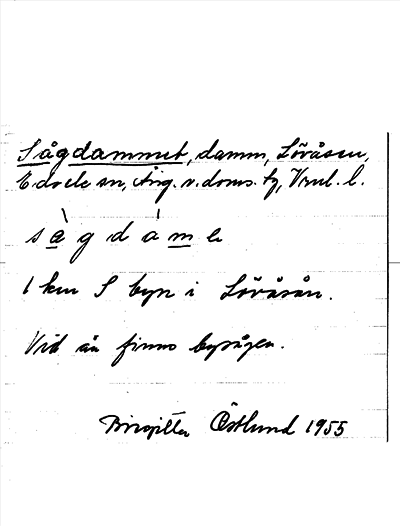 Sågdammet, damm, Lövåsen,
Eda sn, Äng. v. doms. tg, Vrml. l.
sågdàme
1 km S byn i Lövåsån.
Vid ån finns bysågen.
Birgitta Östlund 1955